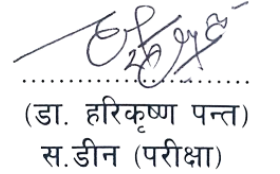 (डा. हरिकृष्ण पन्त)
स.डीन (परीक्षा)